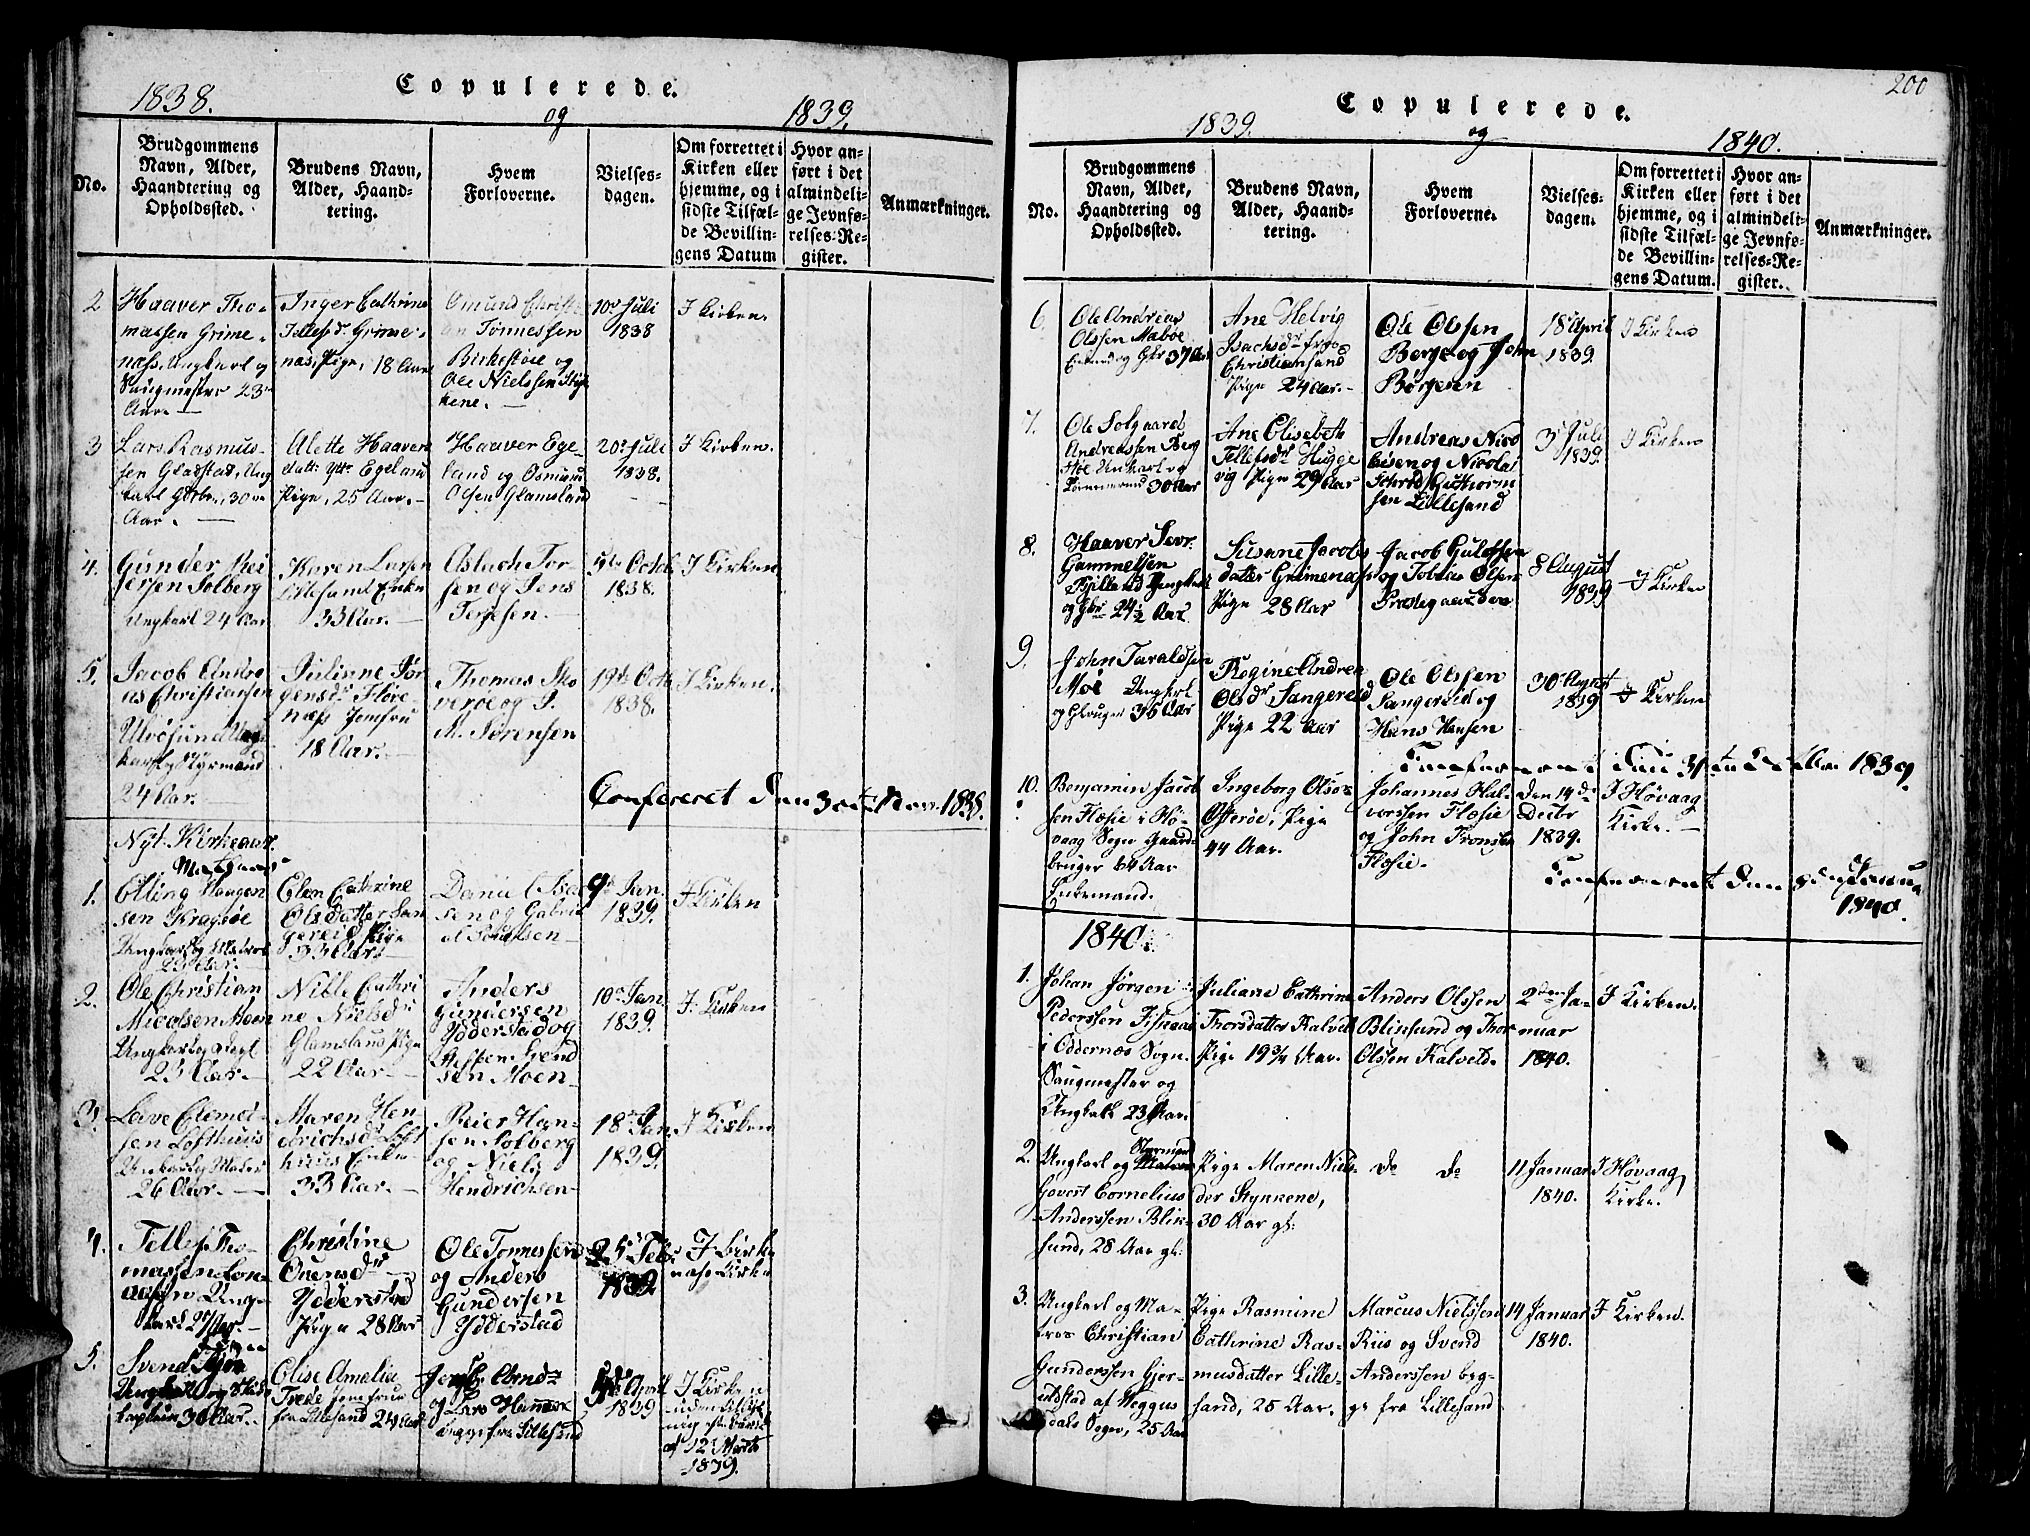 1838.
Copulerede.
og
1839.
No.
Brudgommens
Navn, Alder,
Haandtering og
Opholdssted.
Brudens Navn,
Alder, Haand-
tering.
Hvem
Forloverne.
Vielses-
dagen.
Om forrettet i
Kirken eller
hjemme, og i
sidste Tilfæl-
de Bevillin-
gens Datum
Hvor an-
ført i det
almindeli-
ge Jevnfø-
relses-Re-
gister.
Anmærkninger.
2
Haaver Tho-
massen Grime-
næss, Ungkarl og
Saugmester 23
Aar.
Inger Cathrine
Tellefsdr Grime-
næs, Pige, 18 Aar
Omund Christi-
an Tönnessen
Birkestöe og
Ole Nielssen Sty-
kene.
10de Juli
1838
I Kirken.
3
Lars Rasmus-
sen Gladstad, Ung
karl, 30
Aar.
Alette Haavers
datter Egeland
Pige, 25 Aar.
Haaver Ege-
land og Osmund
Olsen Glamsland
20de Juli
1838.
I Kirken.
4.
Gunder Rei-
ersen Solberg
Ungkarl 24 Aar
Karen Larsen
Lillesand Enke
33 Aar.
Aslach Tor-
sen og Jens
Terjesen.
Octob
1838.
I Kirken
5.
Jacob
Christiansen
Ulvösund Ung-
karl og Styrmand
24 Aar.
Juliane Jör-
gensdr Flöre-
næss Jomfru
18 Aar.
Thomas Sko-
veroe og P.
M. Sörensen
19de Octo
1838.
I Kirken.
Confereret den 30te Nov. 1838.
Nyt Kirkeaar
1.
Elling Haagen-
sen Kragöe
Ungkarl og Matros
25 Aar.
Elen Cathrine
Olsdatter San-
gereid Pige
33 Aar.
Daniel Isac-
sen og Gabri-
el
9de Jan.
1839.
I Kirken
2.
Ole Christian
Nicolsen Moen
Ungkarl og
23 Aar.
Nille Cathri
ne Nielsdr
Glamsland Pige
22 Aar.
Anders
Gundersen
Ydderstad og
Svend
sen Moen
10de Jan.
1839.
I Kirken
3.
Lave Clemet-
sen Lofthuus
Ungkarl og Matros
26 Aar.
Maren Hen-
drichsdr Loft
huus Enke
33 Aar.
Reier Han-
sen Solberg
og Niels
Hendrichsen
18de Jan.
1839.
I Kirken
4.
Tellef Tho-
massen
Ung-
karl 27 Aar.
Christine
Ouensdr
Ydderstad
Pige 28 Aar
Ole Tönnessen
og Anders
Gundersen
Ydderstad
25de Feb.
1839
I Birke
næss Kirke
5.
Svend
Ungkarl og Skibs
kaptein 30 Aar.
Elise Amelia
Trede Jomfru
fra Lillesand 24 Aar
og Lars
begge fra Lillesand
April
1839
I Kirken
uden
af 12te Marts
1839.
200
1839.
Copulerede.
og
1840.
No.
Brudgommens
Navn, Alder,
Haandtering og
Opholdssted.
Brudens Navn,
Alder, Haand-
tering.
Hvem
Forloverne.
Vielses-
dagen.
Om forrettet i
Kirken eller
hjemme, og i
sidste Tilfæl-
de Bevillin-
gens Datum.
Hvor an-
ført i det
almindeli-
ge Jevnfø-
relses-Re-
gister.
Anmærkninger.
6.
Ole Andreas
Olssen Maböe
Enkemd og Gbr 37 Aar
Ane Helvig
Isachsdr fra
Christiansand
Pige 24 Aar.
Ole Olssen
Berge og John
Börgesen
18de April
1839
I Kirken
7.
Ole Solgaard
Andreassen Berg
30 Aar
Ane Elisebeth
Tellefsdr Hugge
vig Pige 29 Aar
Andreas Nico
laisen og Nicolai
Guthorm
sen Lillesand
3de Juli
1839.
I Kirken
8.
Haaver Sevr.
Gummelsen
Ungkarl
og Gbr 24½ Aar
Susane Jacobs
datter Grimenæs
Pige 28 Aar
Jacob Gulofsen
og Tobias Olsen
8 August
1839
I Kirken
9.
John Taraldsen
Möe Ungkarl
36 Aar
Regine Andrea
Olsdr Sangereid
Pige 22 Aar
Ole Olssen
Sangereid og
Hans Hansen
30 August
1839
I Kirken
1839.
10.
Benjamin Jacob
sen Flæsie i Hö-
vaag Sogn Gaard-
bruger 64 Aar
Enkemand.
Ingeborg Olsdr
Osteröe, Pige
44 Aar.
Johannes Hal-
vorssen Flæsie
og John Tronsen
Flæsie.
Den 14de
Decbr
1839.
I Hövaag
Kirke.
1840.
1840.
1.
Johan Jörgen
Pederssen
i Oddernæs Sogn.
Saugmester og
Ungkarl 23 Aar.
Juliane Cathrine
Thorsdatter Kalveld
Pige 19¾ Aar.
Anders Olssen
Blinsund og Thor
Olssen Kalveld.
2den Ja-
nuar
1840.
I Kirken.
2.
Ungkarl og Styrmand
Govert Cornelius
Anderssen Blin-
sund, 28 Aar gl:
Pige Maren Niels-
der Stykkene,
30 Aar gl:
do do
11 Januar
1840.
I Hövaag
Kirke.
3.
Ungkarl og Ma-
tros Christian
Gunderssen Gjer-
uldstad af Heggus
dals Sogn, 25 Aar
Pige Rasmine
Cathrine Ras-
musdatter Lille-
sand, 25 Aar.
Marcus Nielssen
Riis og Svend
Anderssen beg-
ge fra Lillesand
14 Januar
1840.
I Kirken.